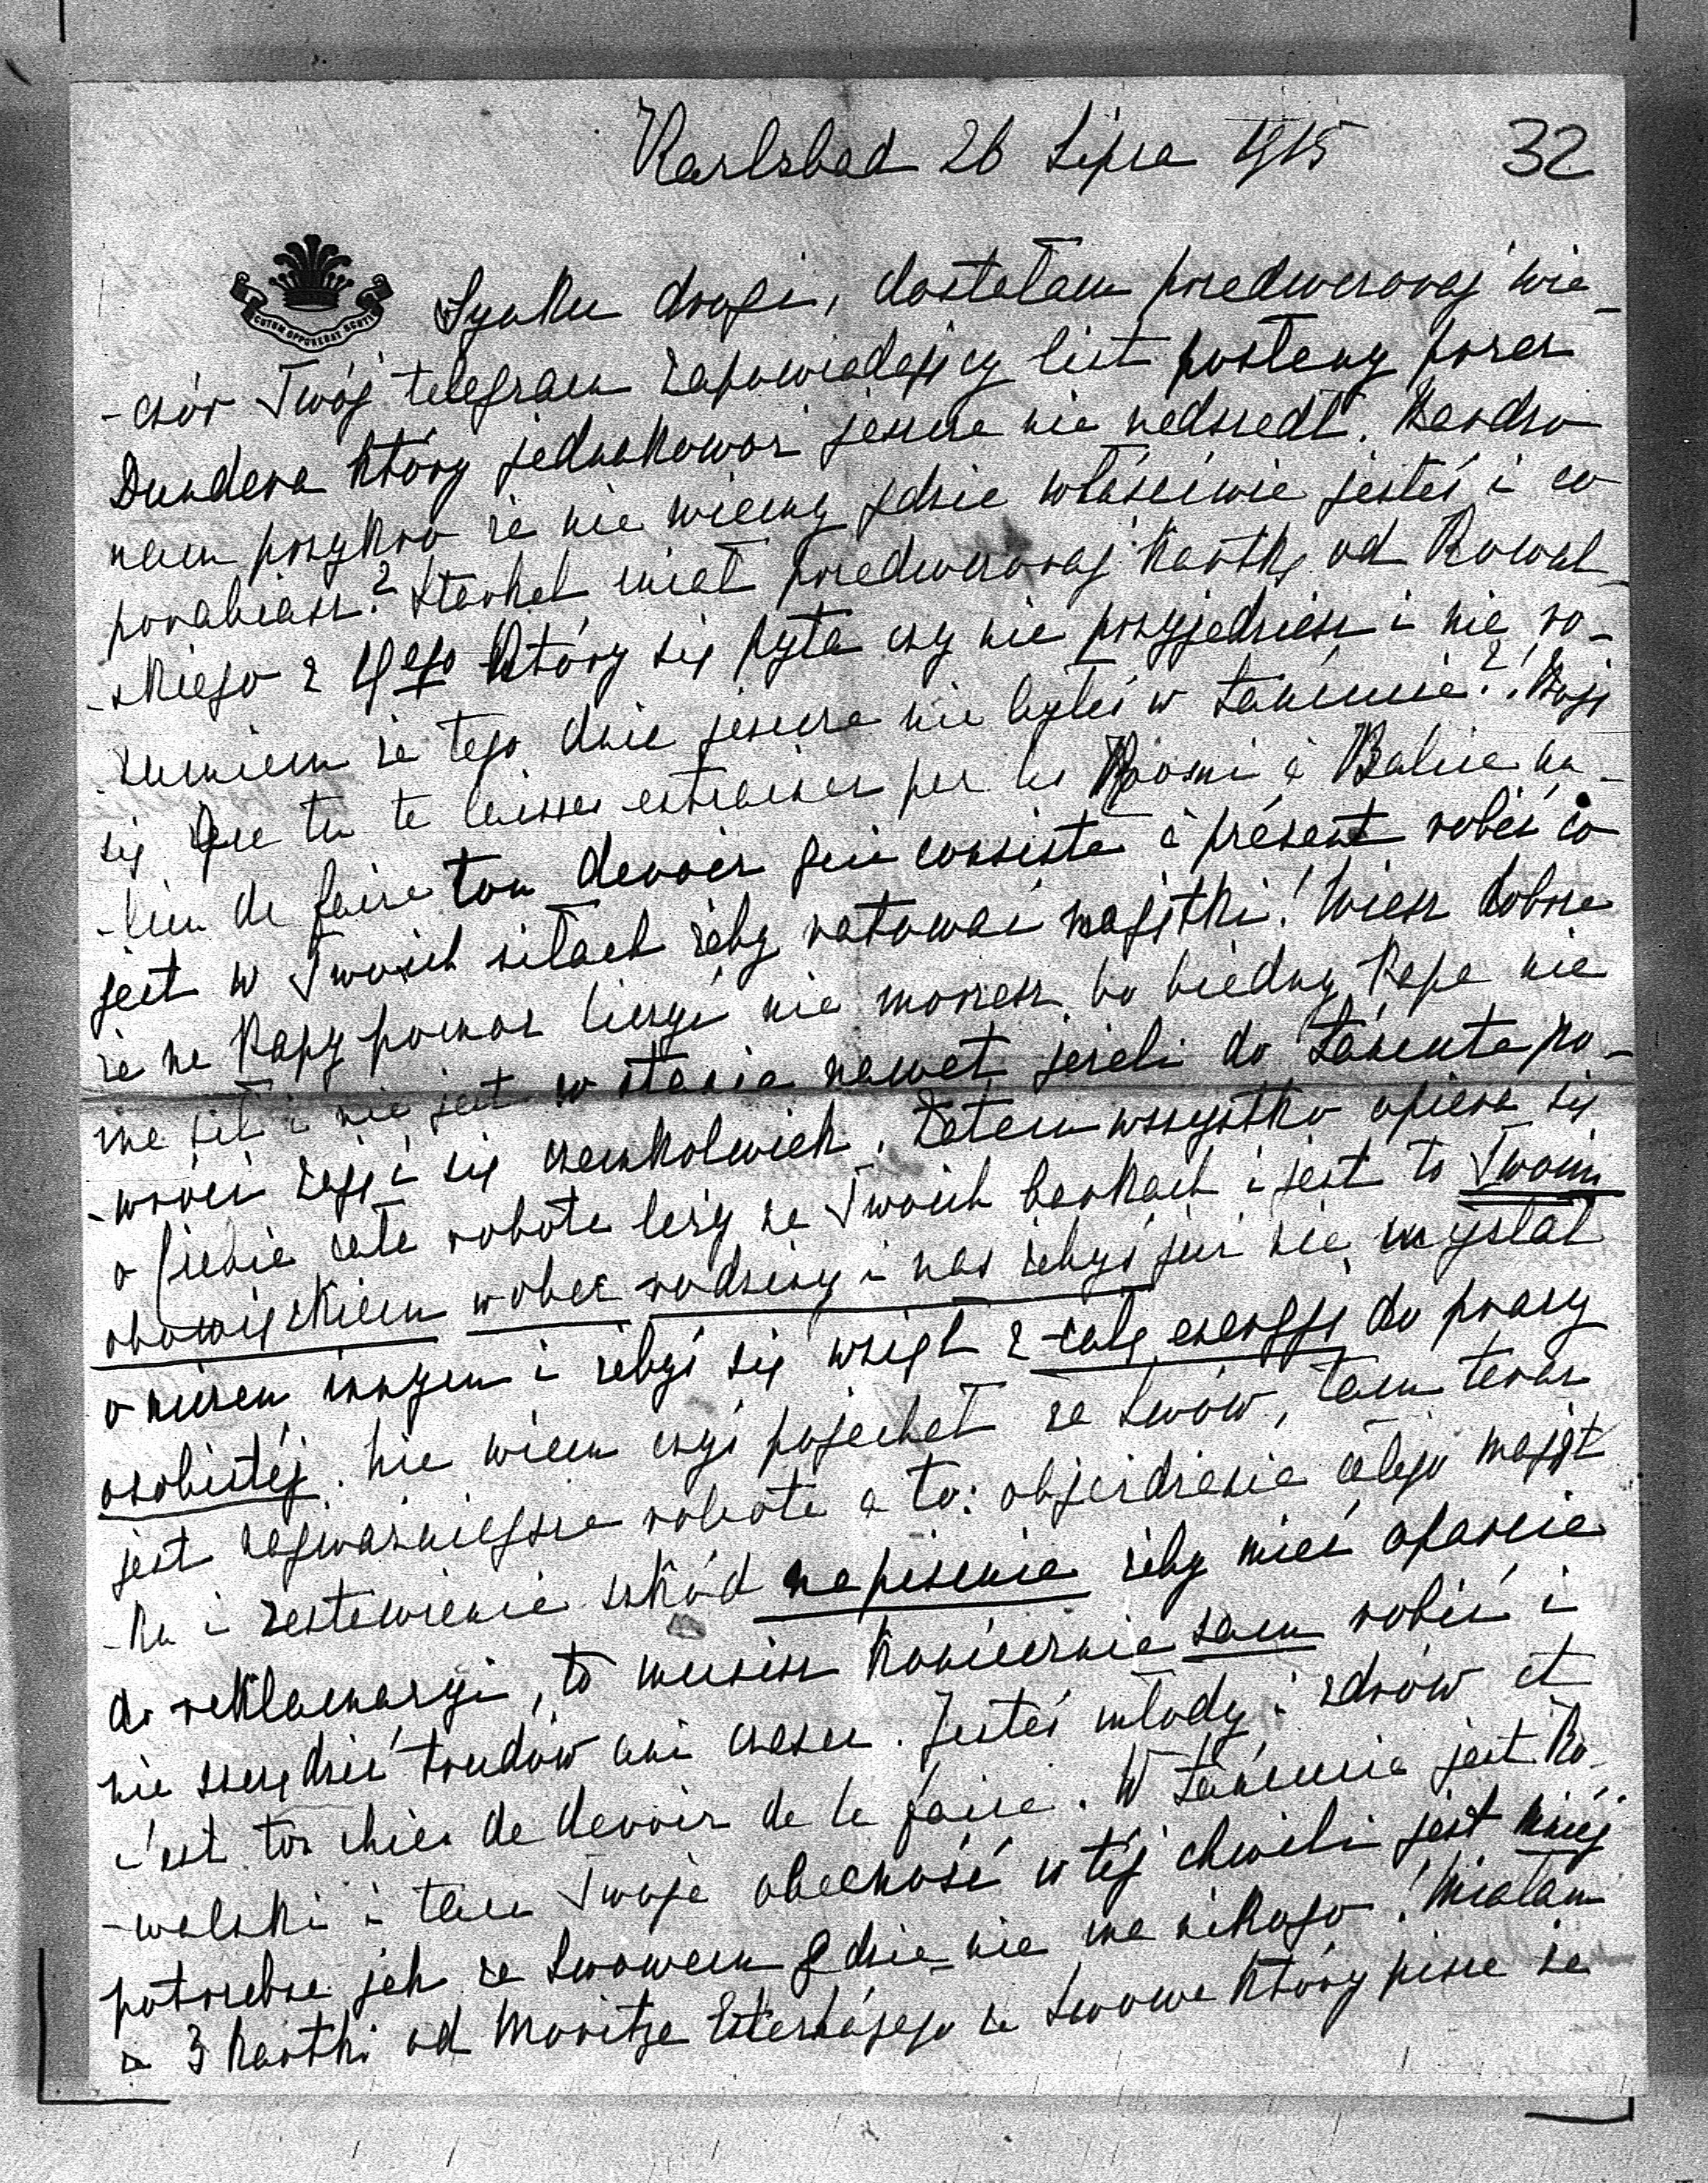 Karlsbad 26 Lipca 1915 32
CUTEM OPPONEBAT SCUTI
Synku drogi, dostałam przedwczoraj wie-
-czór Twój telegram zapowiadający list posłany przez
Dundera który jednakowoż jeszcze nie nadszedł. Bardzo
nam przykro że nie wiemy gdzie właściwie jesteś i co
porabiasz? Starkel miał przedwczoraj kartkę od Kowal-
-skiego z 4go który się pyta czy nie przyjedziesz i nie ro-
-zumiem że tego dnia jeszcze nie byłeś w Łańcucie?! Boję
się que tu te laisses entrainer par les à Balice au-
-lieu de faire ton devoir qui consiste à présent robić co
jest w Twoich siłach żeby ratować majątki! Wiesz dobrze
że na Papy pomoc liczyć nie możesz bo biedny Papa nie
ma sił i nie jest w stanie nawet jeżeli do Łańcuta po-
-wróci zająć się czemkolwiek. Zatem wszystko opiera się
o Ciebie cała robota leży na Twoich barkach i jest to Twoim
obowiązkiem wobec rodziny i nas żebyś już nie myślał
o niczem innym i żebyś się wziął z całą energją do pracy
osobistéj. Nie wiem czyś pojechał do Lwów, tam teraz
jest najważniejsza robota a to: objeżdżenie całego mająt
-ku i zestawienie szkód na piśmie żeby mieć oparcie
do reklamacyi, to musisz koniecznie sam robić i
nie szczędzić trudów ani czasu. Jesteś młody i zdrów et
c'est ton chien de devoir de le faire. W Łańcucie jest Ko-
-walski i tam Twoja obecność w téj chwili jest mniéj
potrzebna jak ze Lwowem gdzie nie ma nikogo! Miałam
3 kartki od Moritza ze Lwowa który pisze że